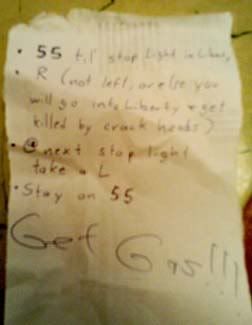 • 55 til' stop light in Liberty
• R (not left, or else you
will go into Liberty & get
killed by crack heads)
• @ next stop light
take a L
• Stay on 55
Get Gas!!!